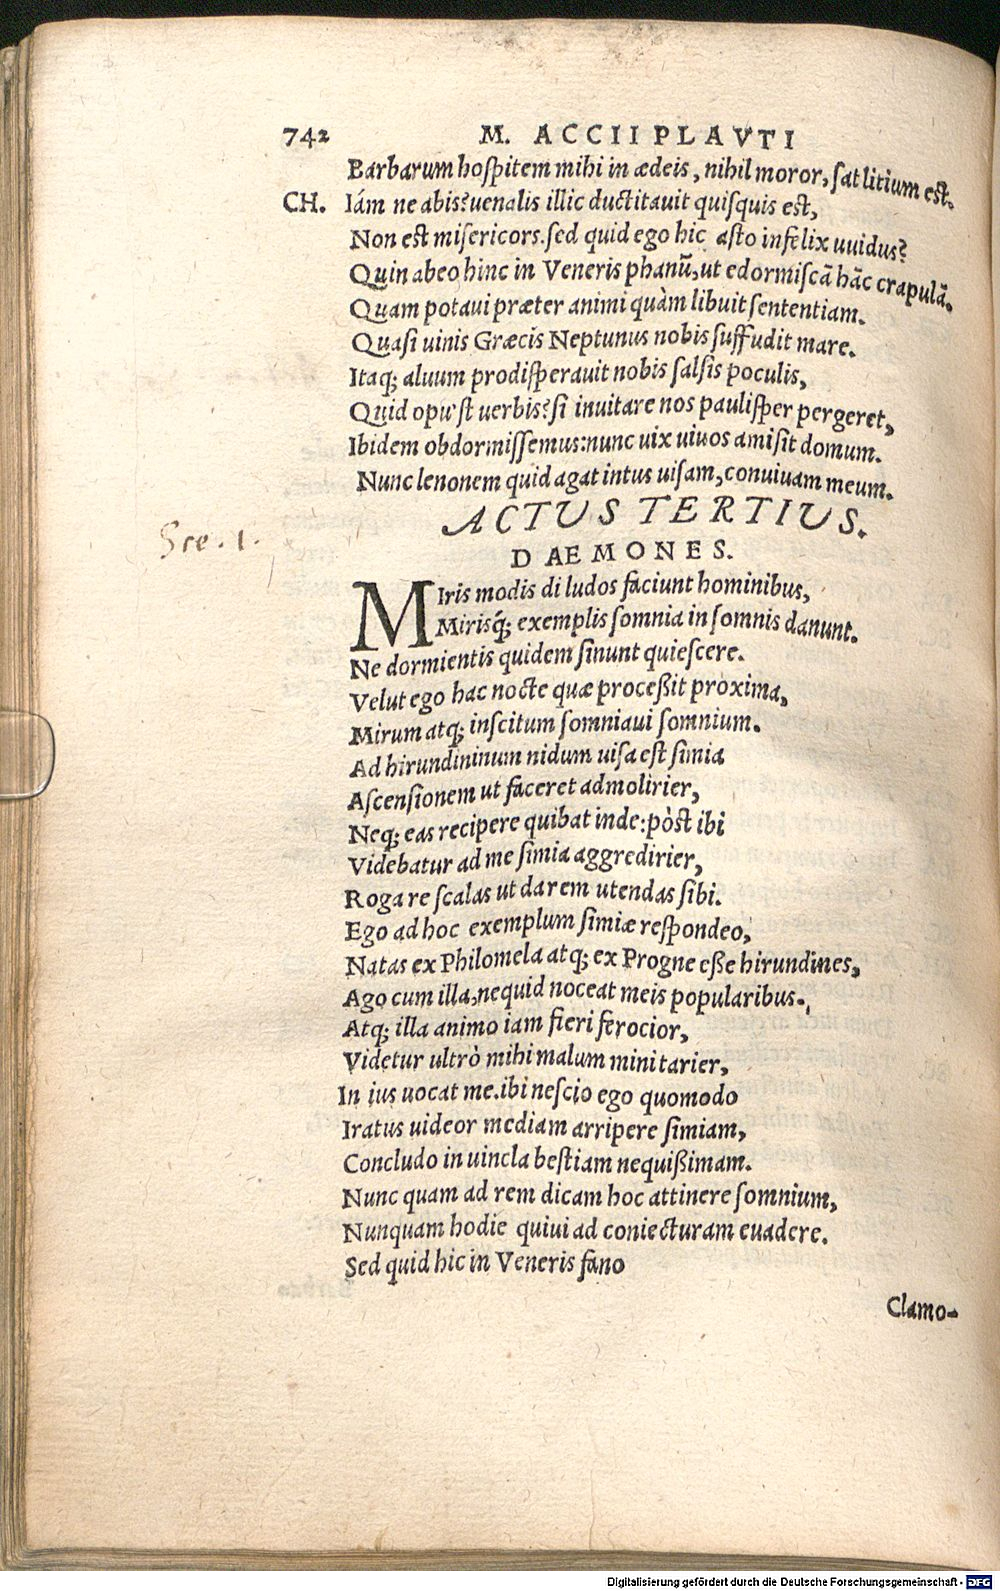 742 M. ACCII PLAVTI
Barbarum hospitem mihi in ædeis, nihil moror, sat litium est.
CH. Iám ne abis? uenalis illic ductitauit quisquis est,
Non est misericors. sed quid ego hic asto infelix uuidus?
Quin abeo hinc in Veneris phanū, ut edormiscā hāc crapulā.
Quam potaui præter animi quàm libuit sententiam.
Quasi uinis Græcis Neptunus nobis suffudit mare.
Itaq; aluum prodisperauit nobis salsis poculis,
Quid opu'st uerbis? si inuitare nos paulisper pergeret,
Ibidem obdormissemus: nunc uix uiuos amisit domum.
Nunc lenonem quid agat intus uisam, conuiuam meum.
ACTUS TERTIUS.
Sce. 1.
DAEMONES.
MIris modis di ludos faciunt hominibus,
Mirisq́; exemplis somnia in somnis danunt.
Ne dormientis quidem sinunt quiescere.
Velut ego hac nocte quæ proceßit proxima,
Mirum atq; inscitum somniaui somnium.
Ad hirundininum nidum uisa est simia
Ascensionem ut faceret admolirier,
Neq; eas recipere quibat inde: pòst ibi
Videbatur ad me simia aggredirier,
Rogare scalas ut darem utendas sibi.
Ego ad hoc exemplum simiæ respondeo,
Natas ex Philomela atq; ex Progne eße hirundines,
Ago cum illa, nequid noceat meis popularibus.
Atq; illa animo iam fieri ferocior,
Videtur ultrò mihi malum minitarier,
In ius uocat me. ibi nescio ego quomodo
Iratus uideor mediam arripere simiam,
Concludo in uincla bestiam nequißimam.
Nunc quam ad rem dicam hoc attinere somnium,
Nunquam hodie quiui ad coniecturam euadere.
Sed quid hic in Veneris fano
Clamo-
Digitalisierung gefördert durch die Deutsche Forschungsgemeinschaft - DFG